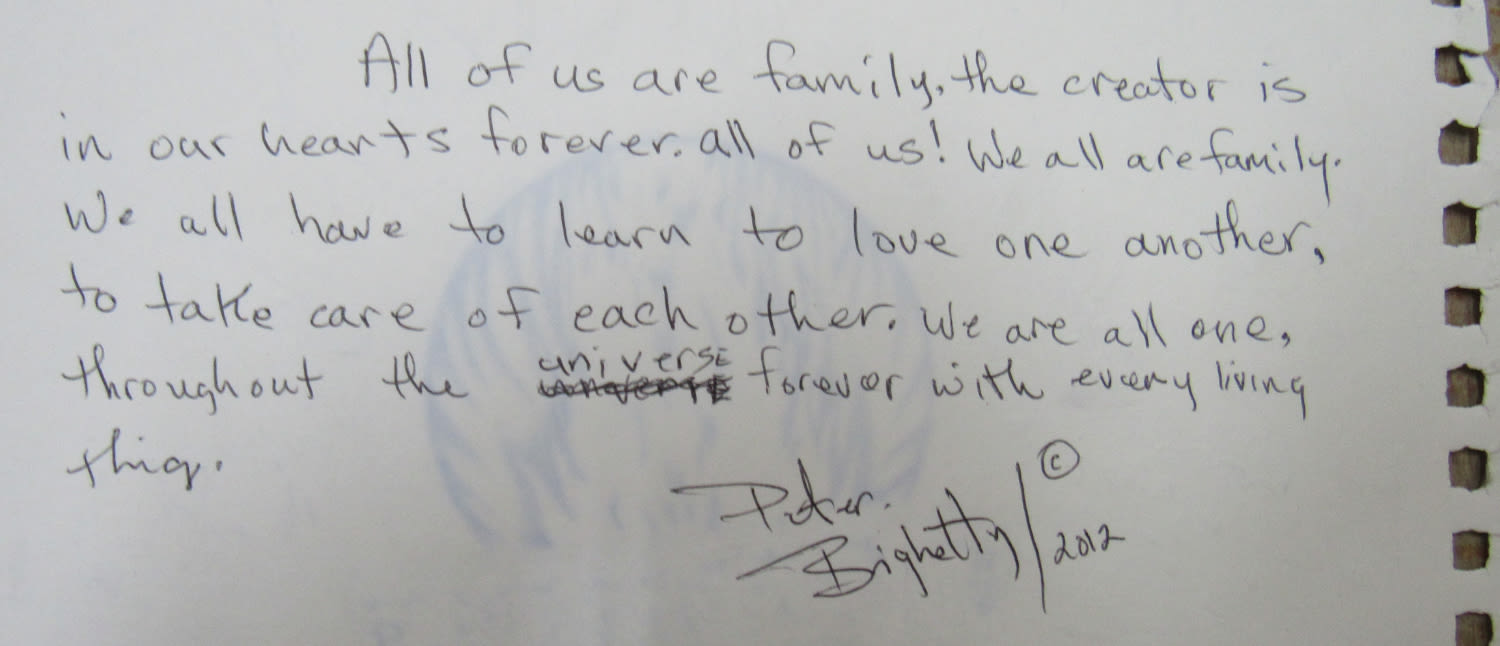 All of us are family. the creator is
in our hearts forever. all of us! We all are family.
We all have to learn to love one another,
to take care of each other. We are all one,
throughout the universe forever with every living
thig.
Peter.
Bighetty / © 2012